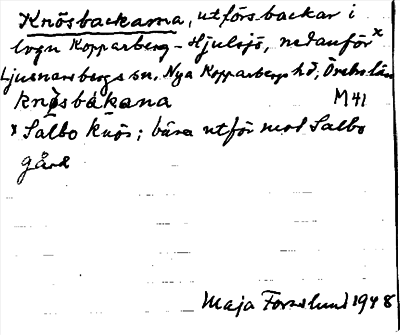 Knösbackarna, utförsbackar i
vägn Kopparberg - Hjulsjö, nedanför x
Ljusnarsbergs sn, Nya Kopparbergs hd, Örebro län
knösbakana M41
x Salbo knös; bära utför mot Salbo
gård
Maja Forsslund 1948